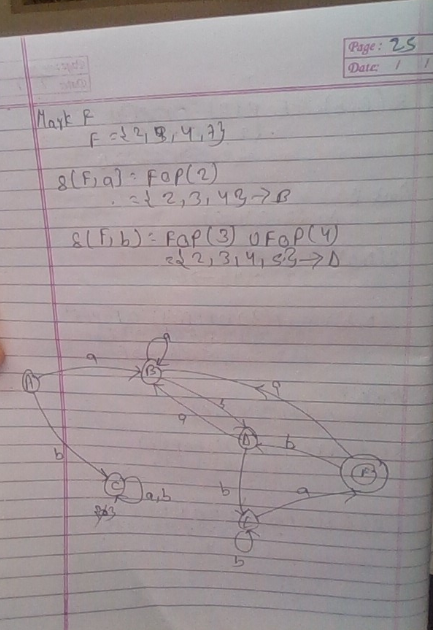 Page: 25
Date: / /
Mark F
F = {2, 3, 4, 7}
δ[F, a] = FOP(2)
= {2, 3, 4} → B
δ(F, b) = FOP(3) ∪ FOP(4)
= {2, 3, 4, 5} → D
a
a
A
B
a
b
a
D
b
b
F
C
a,b
b
E
a
b